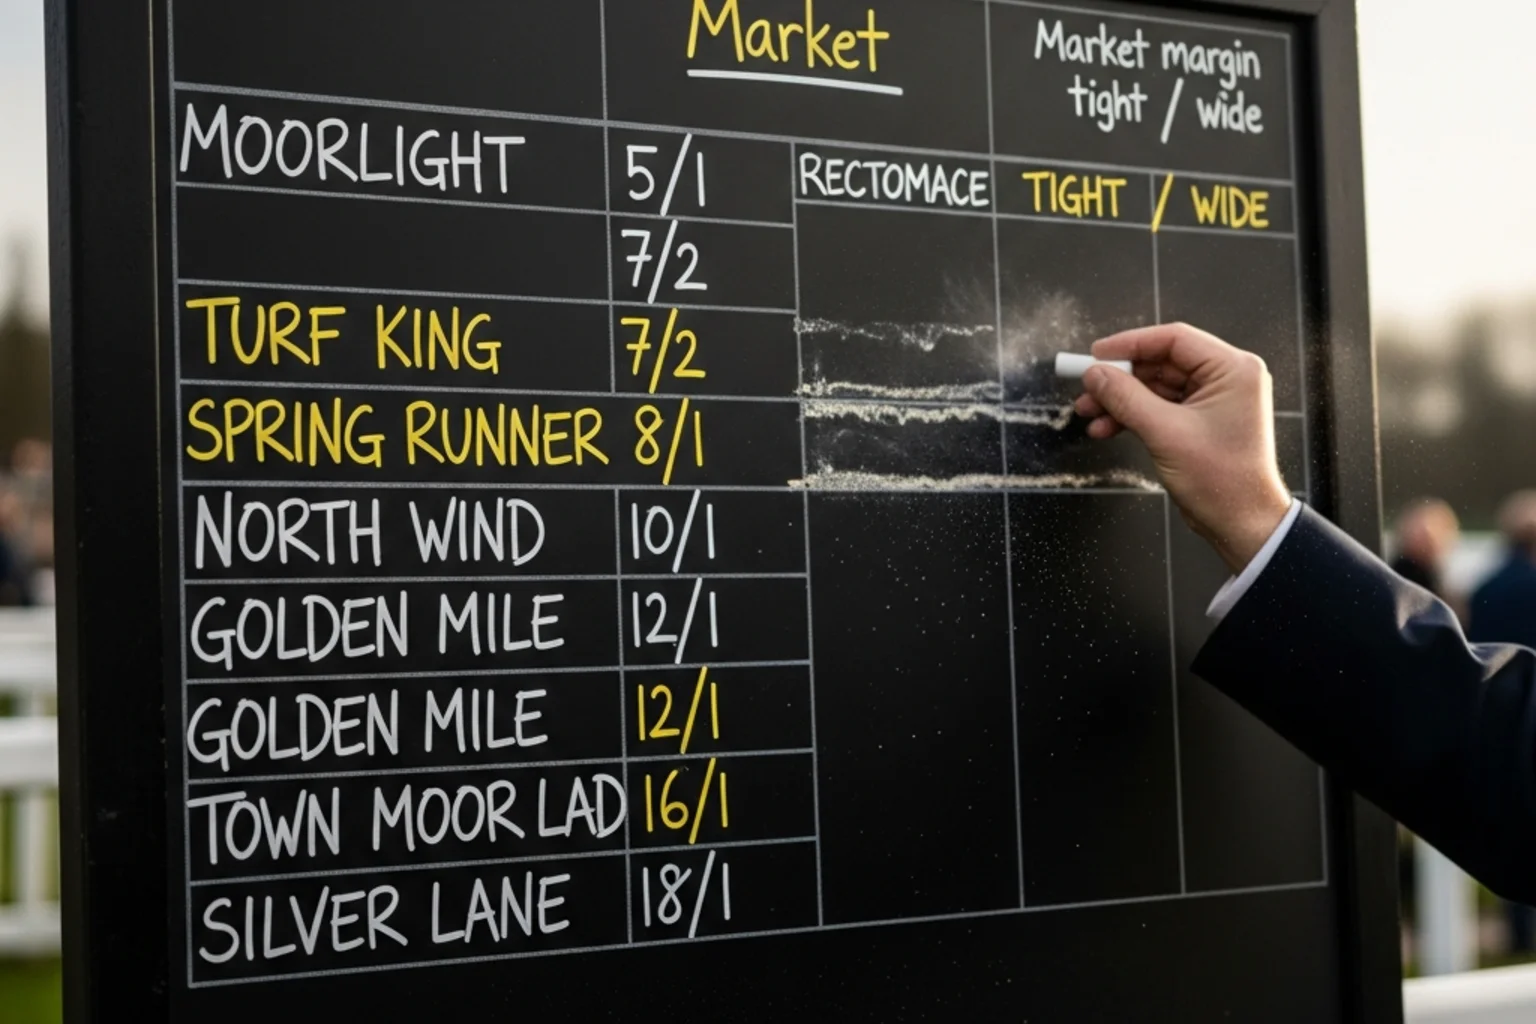 Market
Market margin
tight / wide
MOORLIGHT 5/1 RECTOMACE TIGHT / WIDE
7/2
TURF KING 7/2
SPRING RUNNER 8/1
NORTH WIND 10/1
GOLDEN MILE 12/1
GOLDEN MILE 12/1
TOWN MOOR LAD 16/1
SILVER LANE 18/1